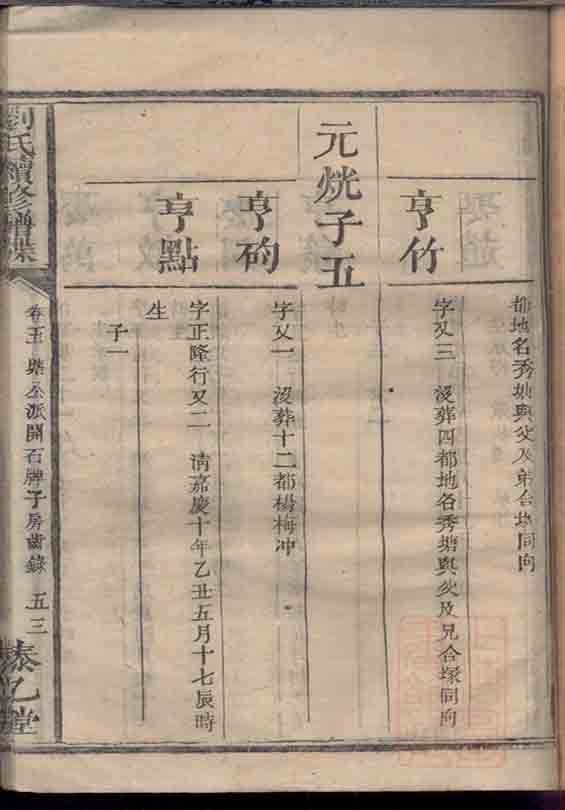 都地名秀塘與父及弟合塚同向
亨竹
字又三 沒葬四都地名秀塘與父及兄合塚同向
元㶷子五
亨砲
字又一 沒葬十二都楊梅冲
亨點
字正隆行又二 清嘉慶十年乙丑五月十七辰時
生
子一
劉氏續修譜牒
卷五 公派開石牌子房齒錄 五三
泰乙堂